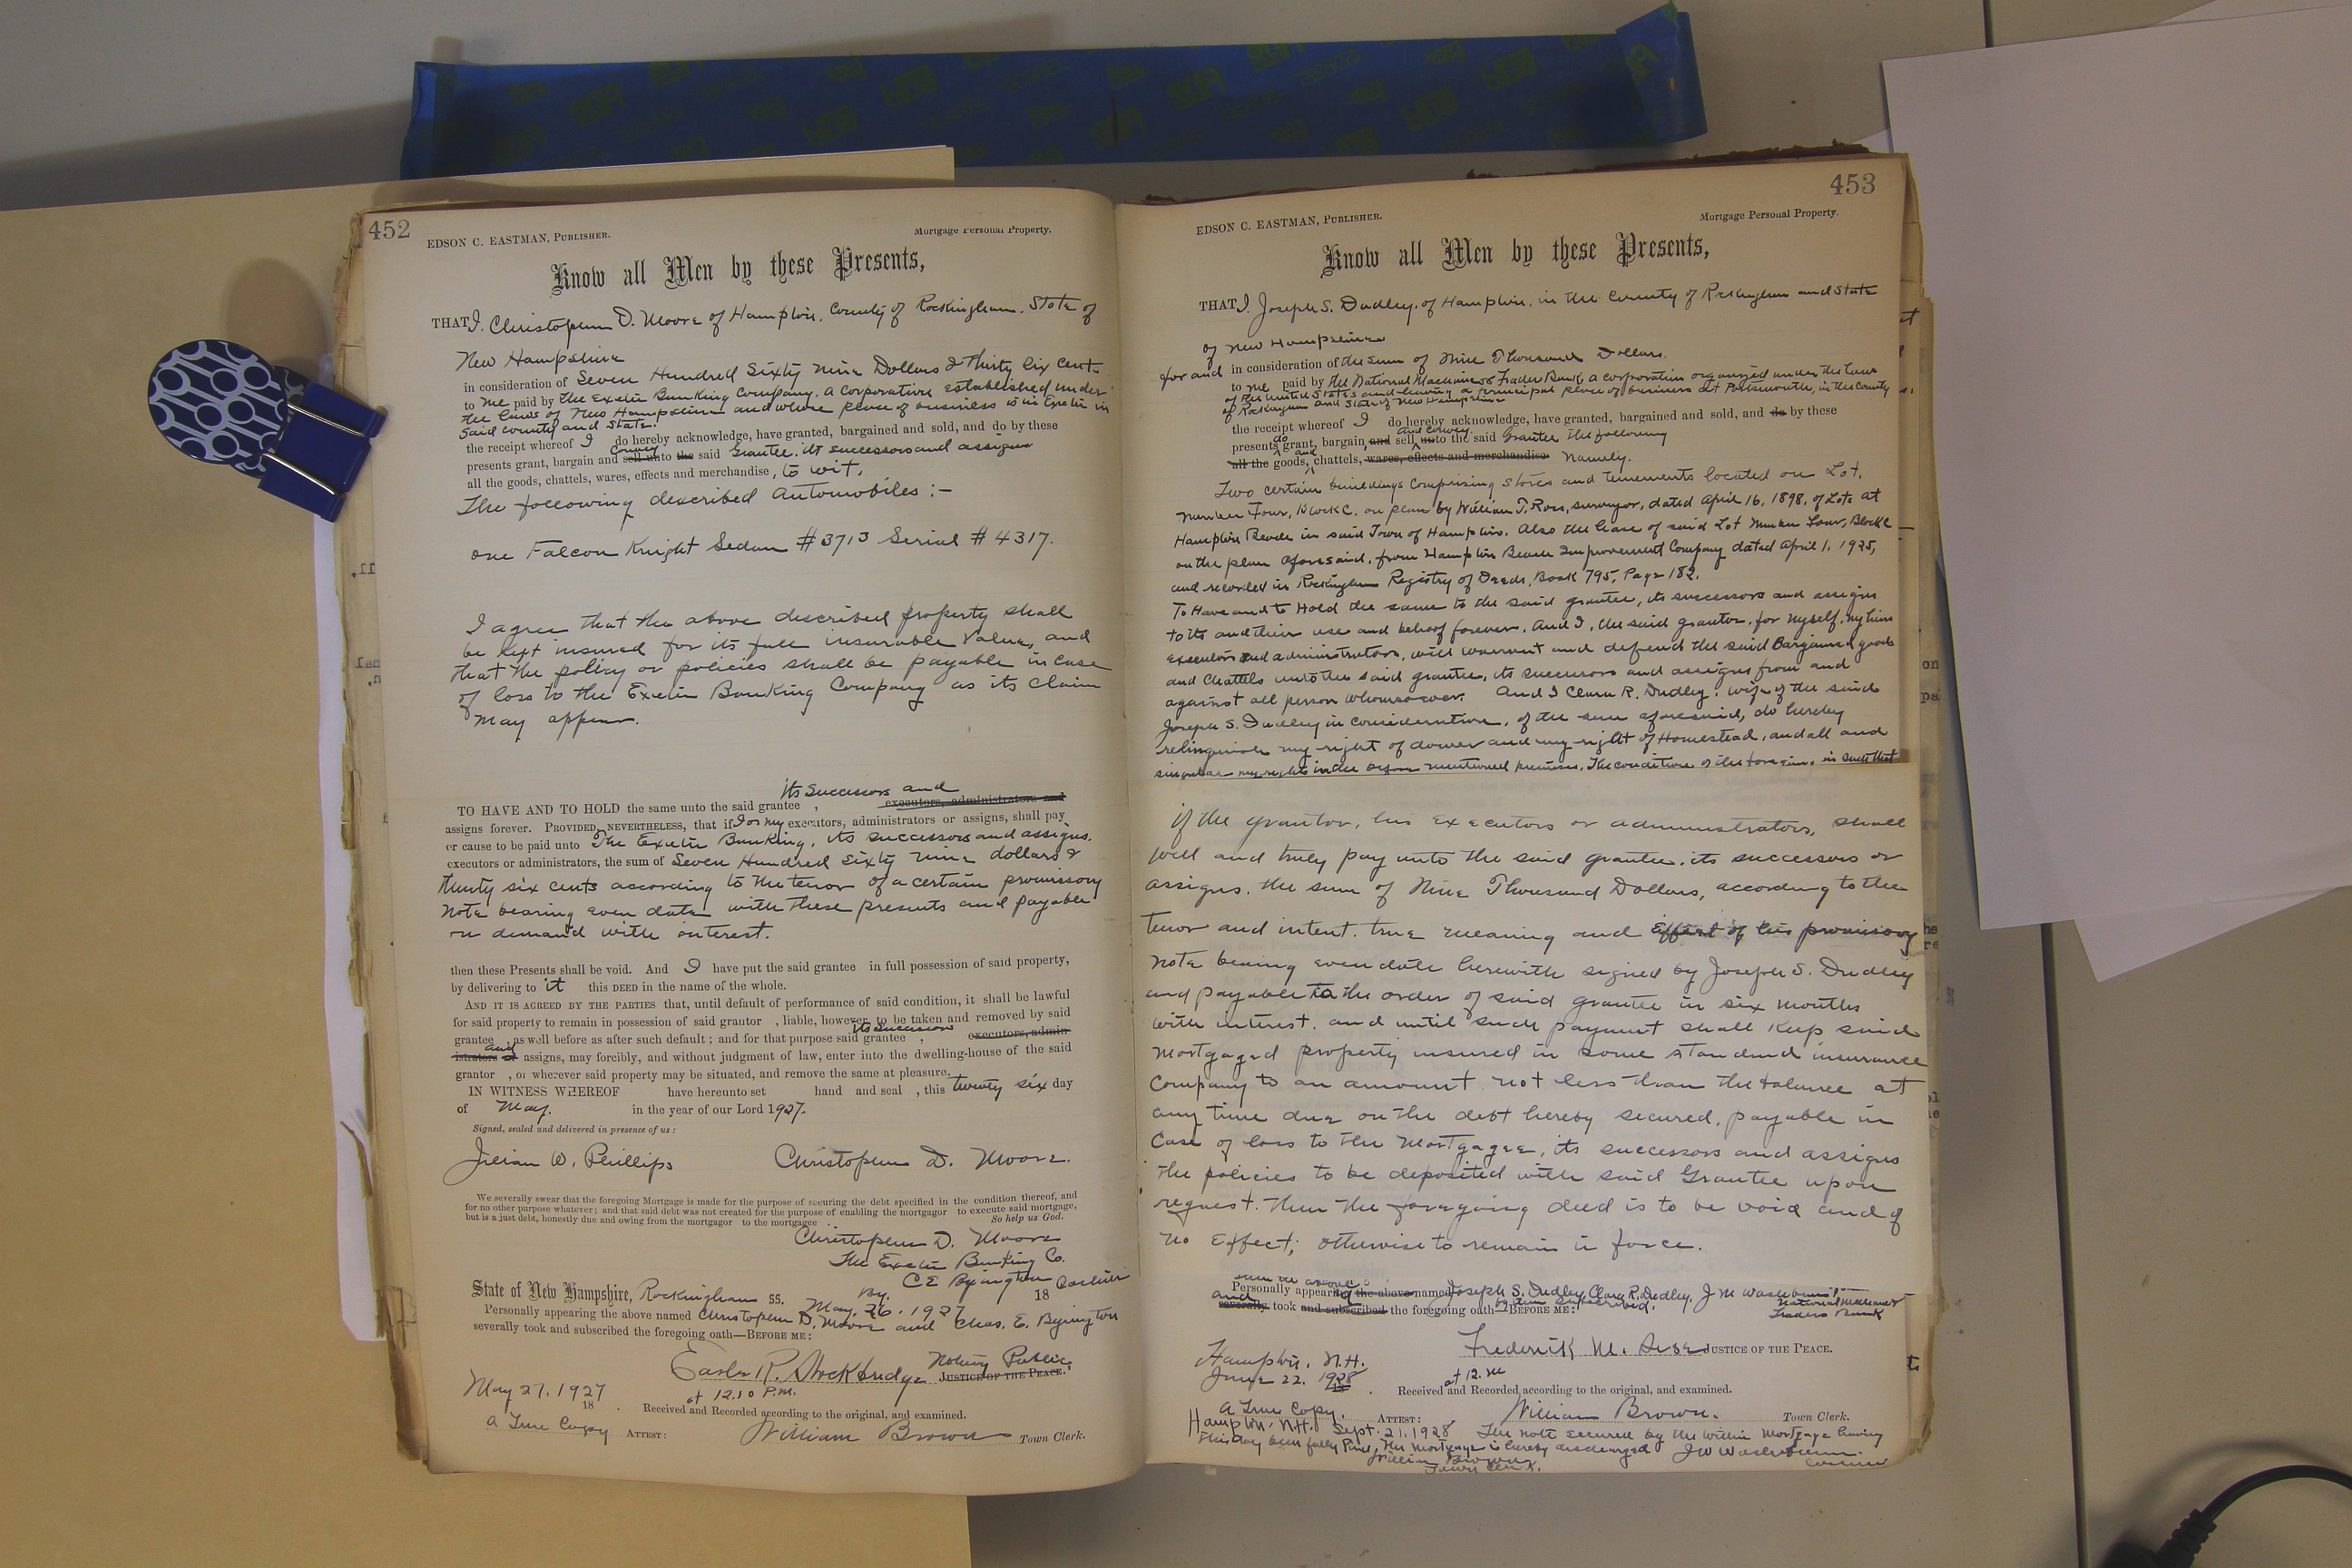 452
EDSON C. EASTMAN, PUBLISHER.
Mortgage Personal Property.
Know all Men by these Presents,
THAT I. Christopher D. Moore of Hampton, County of Rockingham. State of
New Hampshire
in consideration of Seven Hundred Sixty Nine Dollars & Thirty Six Cents
to me paid by the Exeter Banking Company, a corporation established under
the laws of New Hampshire and whose place of business is in Exeter in
said county and State.
the receipt whereof I do hereby acknowledge, have granted, bargained and sold, and do by these
convey
presents grant, bargain and sell unto the said Grantee, its successors and assigns
all the goods, chattels, wares, effects and merchandise, to wit,
The following described Automobiles :-
one Falcon Knight Sedan #3713 Serial #4317.
I agree that the above described property shall
be kept insured for its full insurable value, and
that the policy or policies shall be payable in case
of loss to the Exeter Banking Company as its claim
may appear.
its Successors and
TO HAVE AND TO HOLD the same unto the said grantee , executors, administrators and
assigns forever. PROVIDED, NEVERTHELESS, that if I or my executors, administrators or assigns, shall pay
or cause to be paid unto The Exeter Banking, its successors and assigns.
executors or administrators, the sum of Seven Hundred Sixty nine dollars &
thirty six cents according to the tenor of a certain promissory
note bearing even date with these presents and payable
on demand with interest.
then these Presents shall be void. And I have put the said grantee in full possession of said property,
by delivering to it this DEED in the name of the whole.
AND IT IS AGREED BY THE PARTIES that, until default of performance of said condition, it shall be lawful
for said property to remain in possession of said grantor , liable, however, to be taken and removed by said
its successors
grantee , as well before as after such default ; and for that purpose said grantee , executors, admin-
and
istrators or assigns, may forcibly, and without judgment of law, enter into the dwelling-house of the said
grantor , or wherever said property may be situated, and remove the same at pleasure.
IN WITNESS WHEREOF have hereunto set hand and seal , this twenty six day
of May. in the year of our Lord 1927.
Signed, sealed and delivered in presence of us :
W. Phillips Christopher D. Moore.
We severally swear that the foregoing Mortgage is made for the purpose of securing the debt specified in the condition thereof, and
for no other purpose whatever ; and that said debt was not created for the purpose of enabling the mortgagor to execute said mortgage,
but is a just debt, honestly due and owing from the mortgagor to the mortgagee . So help us God.
Christopher D. Moore
The Exeter Banking Co.
By. C E Byington Cashier
State of New Hampshire, Rockingham SS. May, 26. 1927 18
Personally appearing the above named Christopher D. Moore and Chas. E. Byington
severally took and subscribed the foregoing oath—BEFORE ME :
Notary Public.
R. Stockbridge JUSTICE OF THE PEACE.
May 27. 1927 at 12.10 P.M.
18 . Received and Recorded according to the original, and examined.
A True Copy ATTEST: William Brown Town Clerk.
453
EDSON C. EASTMAN, PUBLISHER.
Mortgage Personal Property.
Know all Men by these Presents,
THAT I. Joseph S. Dudley, of Hampton, in the County of Rockingham and State
of New Hampshire
for and in consideration of the sum of Nine Thousand Dollars.
to me paid by the National Mechanics & Trader Bank, a corporation organized under the laws
of the United States and having a principal place of business at Portsmouth, in the County
of Rockingham and State of New Hampshire
the receipt whereof I do hereby acknowledge, have granted, bargained and sold, and do by these
do and convey
presents grant, bargain and sell unto the said Grantee the following
and
all the goods, chattels, wares, effects and merchandise Namely.
Two certain buildings comprising stores and tenements located on Lot.
Number Four, Block C. on plan by William T. Ross, surveyor, dated April 16, 1898, of Lots at
Hampton Beach in said Town of Hampton. Also the lease of said Lot Number Four, Block C
on the plan aforesaid, from Hampton Beach Improvement Company dated April 1, 1925,
and recorded in Rockingham Registry of Deeds, Book 795, Page 182.
To Have and to Hold the same to the said grantee, its successors and assigns
to its and their use and behoof forever. And I, the said grantor, for myself, my heirs
executors and administrators, will warrant and defend the said Bargained goods
and chattels unto the said grantee, its successors and assigns from and
against all person whomsoever. And I Clara R. Dudley, wife of the said
Joseph S. Dudley in consideration, of the sum aforesaid, do hereby
relinquish my right of dower and my right of Homestead, and all and
singular my rights in the before mentioned premises. The condition of the foregoing is such that
if the grantor, his executors or administrators, shall
well and truly pay unto the said grantee, its successors or
assigns, the sum of Nine Thousand Dollars, according to the
tenor and intent, true meaning and effect of his promissory
note bearing even date herewith signed by Joseph S. Dudley
and payable to the order of said grantee in six months
with interest. and until such payment shall keep said
mortgaged property insured in some standard insurance
company to an amount not less than the balance at
any time due on the debt hereby secured, payable in
case of loss to the Mortgagee, its successors and assigns
the policies to be deposited with said Grantee upon
request. Then the foregoing deed is to be void and of
no effect; otherwise to remain in force.
Personally appeared the above named Joseph S. Dudley, Clara R. Dudley, J M Washburn
National Mechanics
and
severally took and subscribed the foregoing oath—BEFORE ME: Traders Bank
Frederick M. JUSTICE OF THE PEACE.
Hampton, N.H.
June 22. 1928 at 12. M
. Received and Recorded according to the original, and examined.
A True Copy. ATTEST: William Brown. Town Clerk.
Hampton, N.H. Sept. 21. 1928 The note secured by the within mortgage having
this day been fully Paid, the mortgage is hereby discharged J W Washburn
William Brown Cashier
Town Clerk.